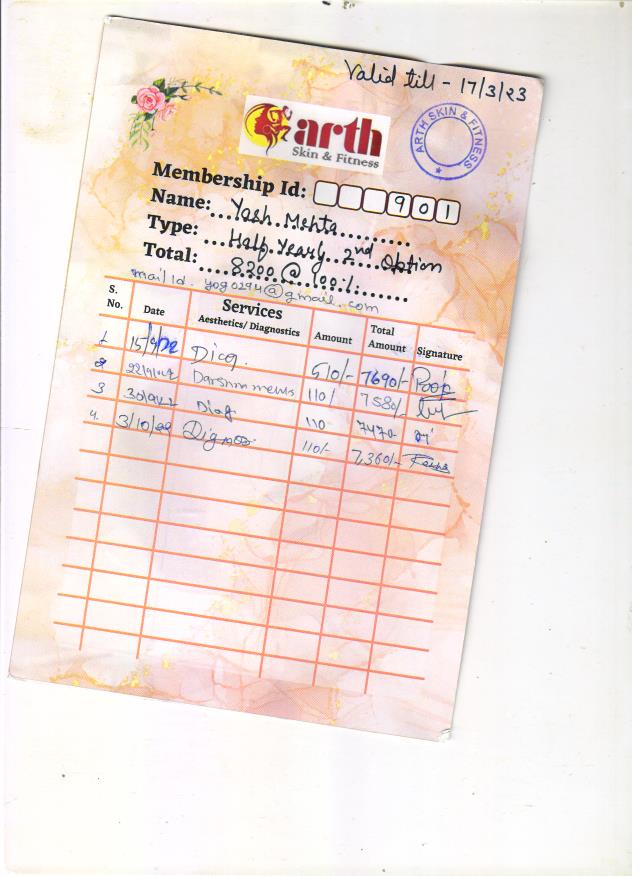 Valid till - 17/3/23
arth
Skin & Fitness
ARTH SKIN & FITNESS
Membership Id: 901
Name: Yash Mehta
Type: Half Yearly 2nd Option
Total: 8200 @ 100%
mail Id. yogo294@gmail.com
S. No. Date Services Aesthetics/ Diagnostics Amount Total Amount Signature
1 15/9/22 510/- 7690/-
2 110/ 7580/-
3 110 7470
4. 3/10/22 110/- 7,360/-